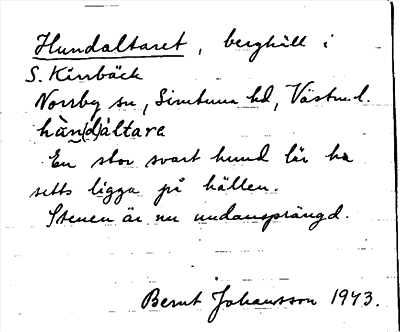 Hundaltaret, berghäll i
S. Kärrbäck
Norrby sn, Simtuna hd, Västm.l.
hùn(d)áltarɛ
En stor svart hund lär ha
setts ligga på hällen.
Stenen är nu undansprängd.
Bernt Johansson 1943.